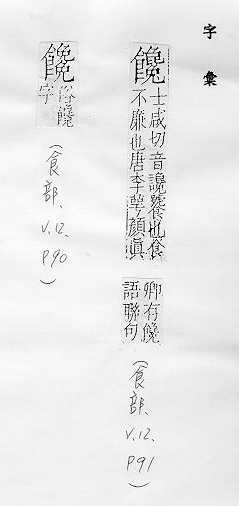 字彙
饞
士咸切音讒饕也食
不廉也唐李萼顏眞
卿有饞
語聯句
(食部、V.12. P91)
俗饞
字
(食部、V.12. P90)